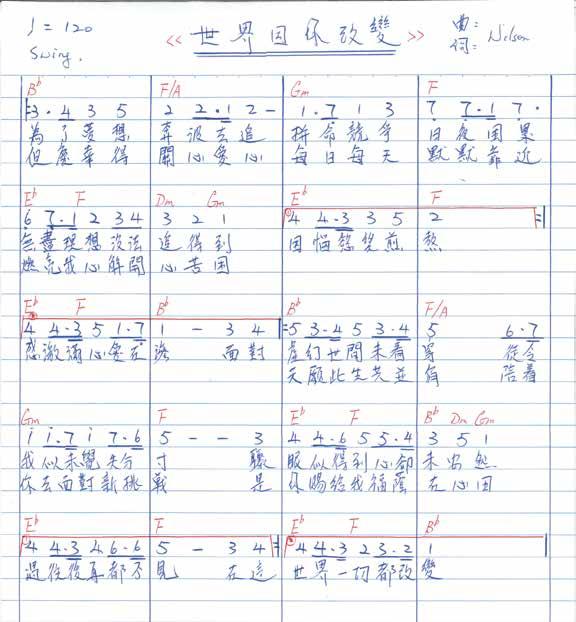 ♩ = 120
Swing.
« 世界因你改變 »
曲:
詞: Nelson
Bb F/A Gm F
3·4 3 5 2 2·1 2 - 1·7 1 3 7 7·1 7·
為了夢想 奔波去追 拼命競爭 日夜困累
但慶幸得 關心愛心 每日每天 默默靠近
Eb F Dm Gm Eb F
6 7·1 2 3 4 3 2 1 4 4·3 3 5 2
無盡理想沒法 追得到 困惱愁煎 熬
燃亮我心解開 心苦困
Eb F Bb Bb F/A
4 4·3 5 1·7 1 - 3 4 5 3·4 5 3·4 5 6·7
感激滿心愛在 面對 虛幻世間未看 穿 從令
天願此生共並 有 陪着
Gm F Eb F Bb Dm Gm
i i·7 i 7·6 5 - - 3 4 4·6 5 5·4 3 5 1
我似未覺失分寸 驟 眼似得到心卻 未安然
你去面對新挑戰 是 你賜給我福蔭 在心田
Eb F Eb F Bb
4 4·3 4 6·6 5 - 3 4 4 4·3 2 3·2 1
過往後再都不 見 在這 世界一切都改 變